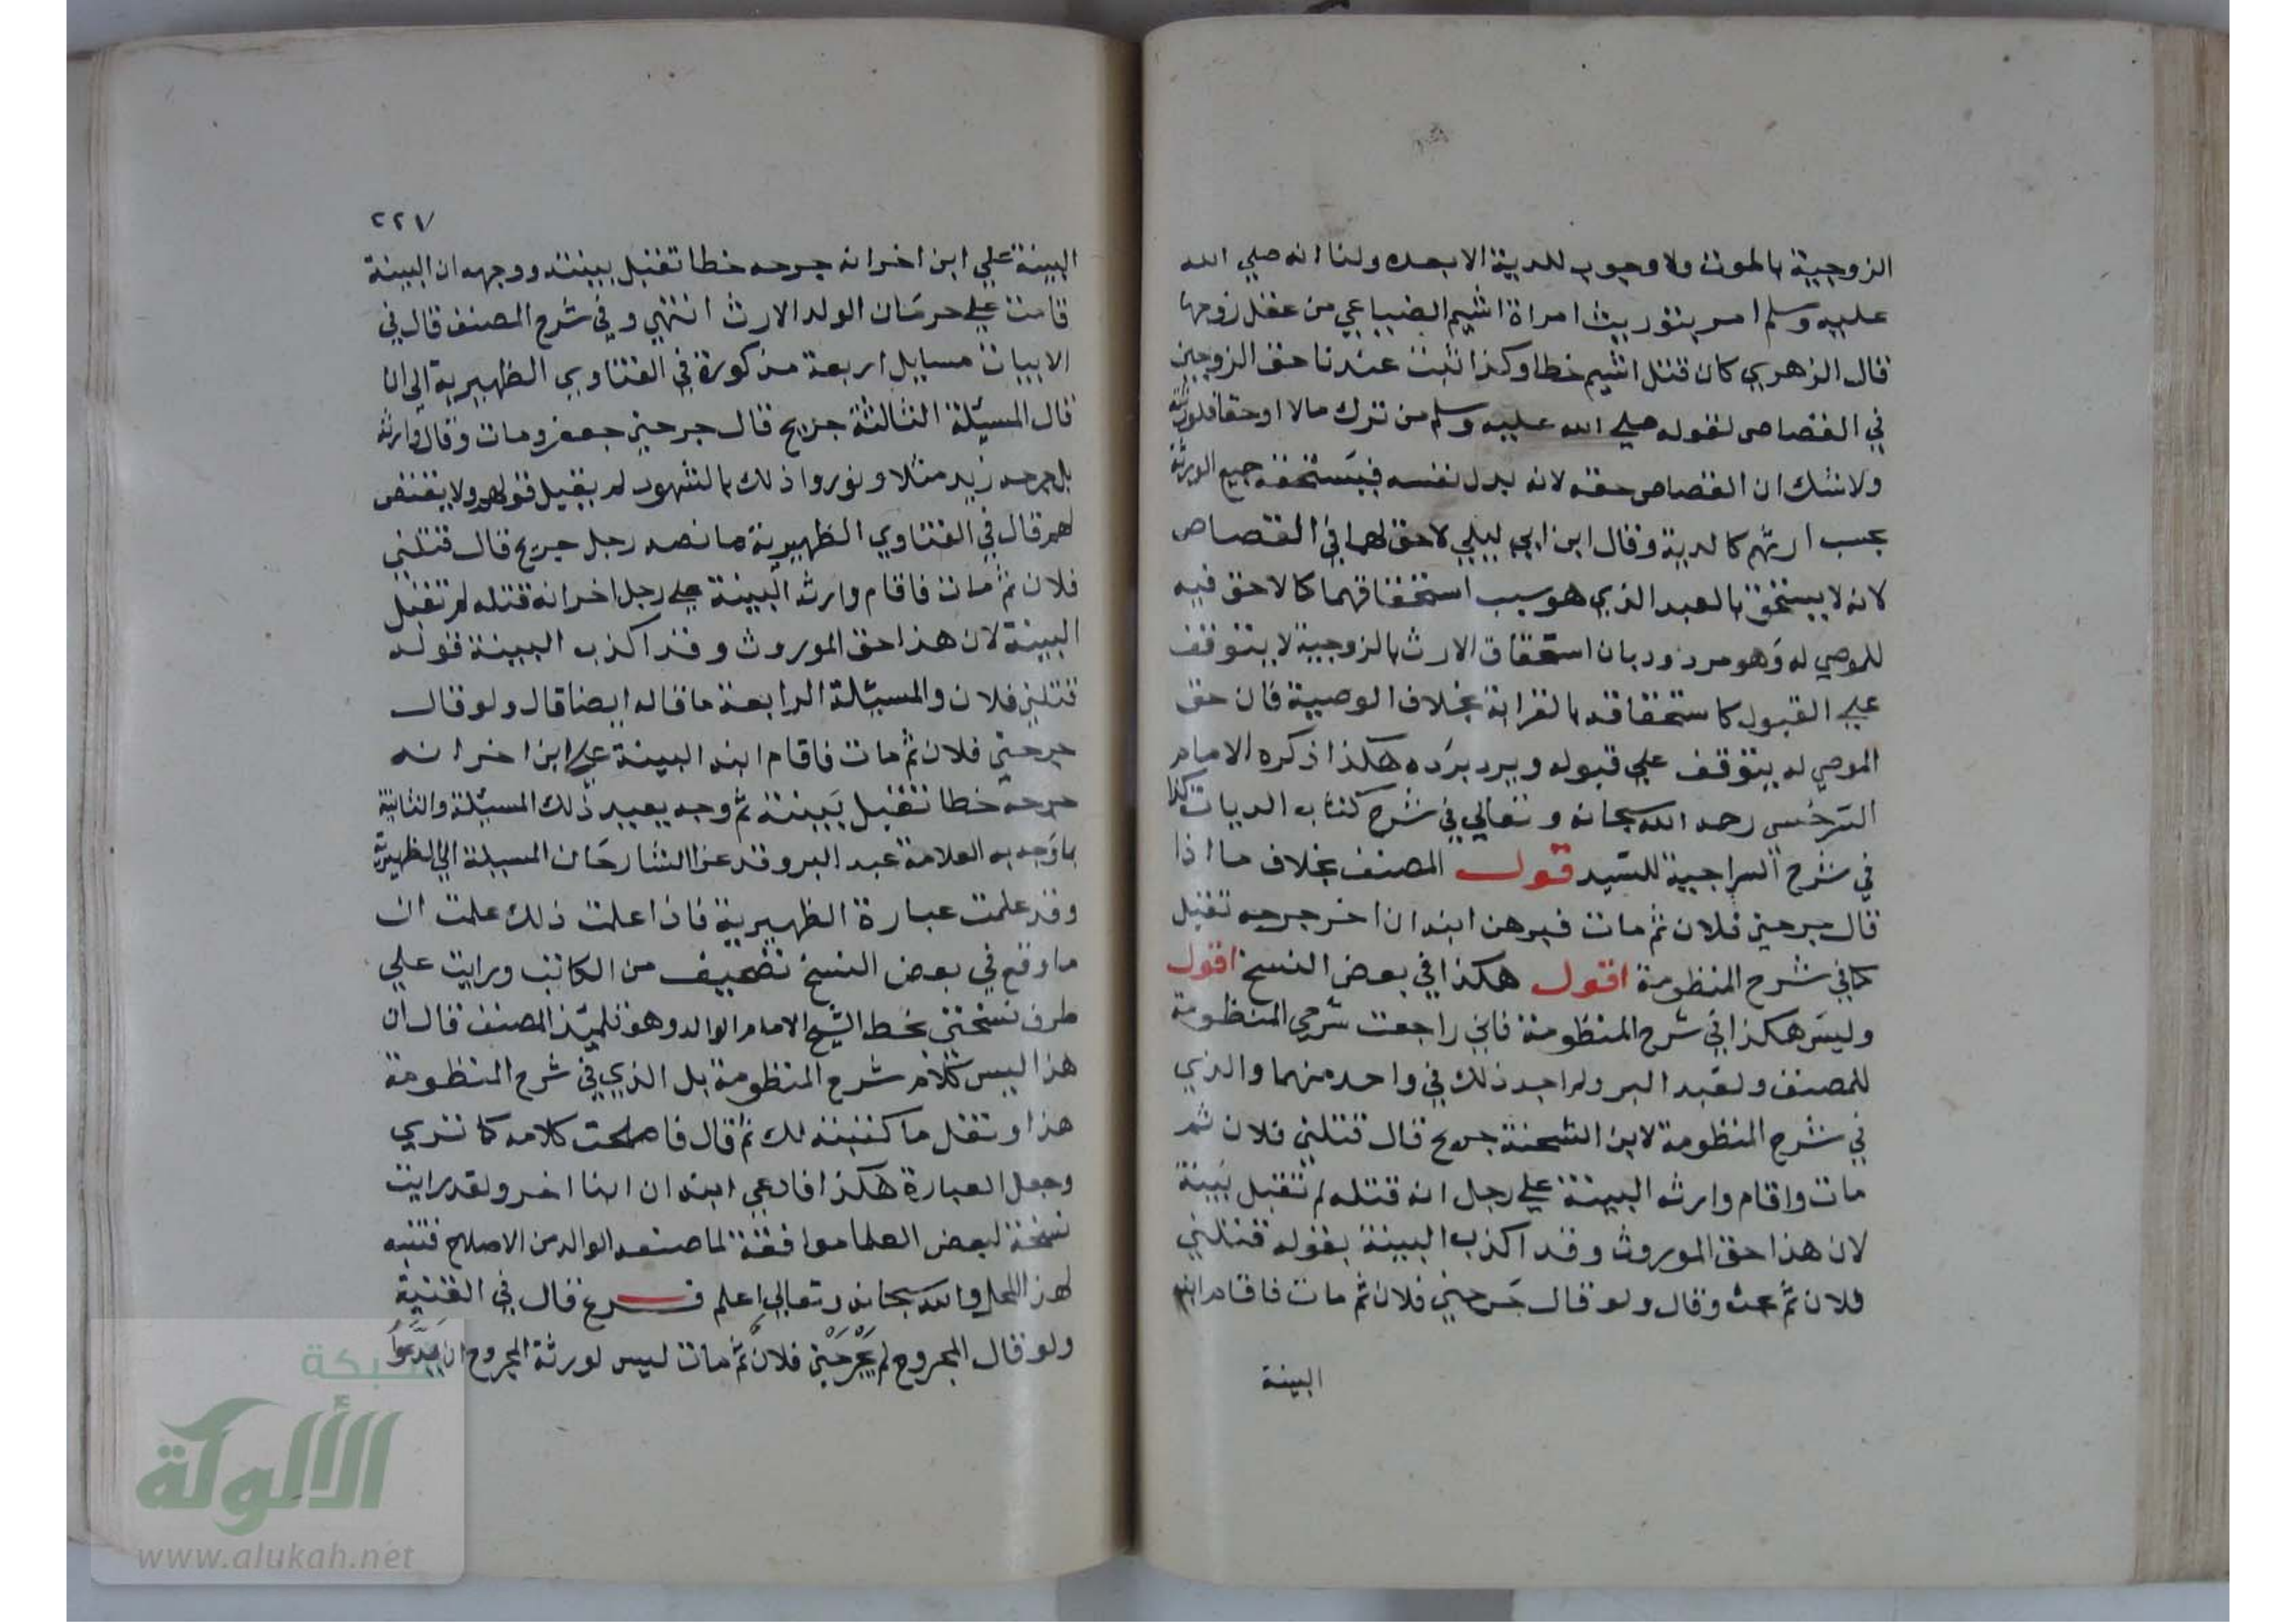 الزوجية بالموت ولا وجوب للدية الا بعده ولنا انه صلي الله
عليه وسلم امر بتوريث امراة اشيم الضبابي من عقل زوجها
قال الزهري كان قتل اشيم خطا وكذا ثبت عندنا حق الزوجين
في القصاص لقوله صلي الله عليه وسلم من ترك مالا او حقا فلورثته
ولا شك ان القصاص حقه لانه بدل نفسه فيستحقه جميع الورثة
بحسب ارثهم كالدية وقال ابن ابي ليلي لا حق لهما في القصاص
لانه لا يستحق بالعبد الذي هو سبب استحقاقهما كالاحق فيه
للموصي له وهو مردود بان استحقاق الارث بالزوجية لا يتوقف
علي القبول كاستحقاقه بالقرابة بخلاف الوصية فان حق
الموصي له يتوقف علي قبوله ويرد برده هكذا ذكره الامام
السرخسي رحمه الله سبحانه وتعالي في شرح كتاب الديات كذا
في شرح السراجية للسيد قول المصنف بخلاف ما اذا
قال جرحني فلان ثم مات فبرهن ابنه ان اخر جرحه تقبل
كما في شرح المنظومة اقول هكذا في بعض النسخ اقول
وليس هكذا في شرح المنظومة فاني راجعت شرحي المنظومة
للمصنف ولعبد البر ولم اجد ذلك في واحد منهما والذي
في شرح المنظومة لابن الشحنة جريح قال قتلني فلان ثم
مات واقام وارثه البينة علي رجل انه قتله لم تقبل بينة
لان هذا حق الموروث وقد اكذب البينة بقوله قتلني
فلان ثم بحث وقال ولو قال جرحني فلان ثم مات فاقام ابنه
البينة
٢٢٧
البينة علي ابن اخر انه جرحه خطا تقبل بينته ووجهه ان البينة
قامت علي حرمان الولد الارث انتهي وفي شرح المصنف قال في
الابيات مسايل اربعة مذكورة في الفتاوي الظهيرية الي ان
قال المسئلة الثالثة جريح قال جرحني جعفر ومات وقال وارثه
بل جرحه زيد مثلا ونوروا ذلك بالشهود لم يقبل قولهم ولا يقتص
لهم قال في الفتاوي الظهيرية ما نصه رجل جريح قال قتلني
فلان ثم مات فاقام وارثه البينة علي رجل اخر انه قتله لم تقبل
البينة لان هذا حق الموروث وقد اكذب البينة قوله
قتلني فلان والمسئلة الرابعة ما قاله ايضا قال ولو قال
جرحني فلان ثم مات فاقام ابنه البينة علي ابن اخر انه
جرحه خطا تقبل بينته ثم وجه بعيد ذلك المسئلة والثانية
بما وجه به العلامة عبد البر وقد عزا الشارحان المسيلة الي الظهيرية
وقد علمت عبارة الظهيرية فاذا علمت ذلك علمت ان
ما وقع في بعض النسخ تصحيف من الكاتب ورايت علي
طرف نسختي بخط الشيخ الامام الوالد وهو تلميذ المصنف قال ان
هذا ليس كلام شرح المنظومة بل الذي في شرح المنظومة
هذا ونقل ما كتبته لك ثم قال فاصلحت كلامه كما تري
وجعل العبارة هكذا فادعي ابنه ان ابنا اخر ولقد رايت
نسخة لبعض العلما موافقة لما صنعه الوالد من الاصلاح فتنبه
لهذا المحل والله سبحانه وتعالي اعلم فرع قال في القنية
ولو قال المجروح لم يجرحني فلان ثم مات ليس لورثة المجروح ان يدعوا
شبكة
الألوكة
www.alukah.net